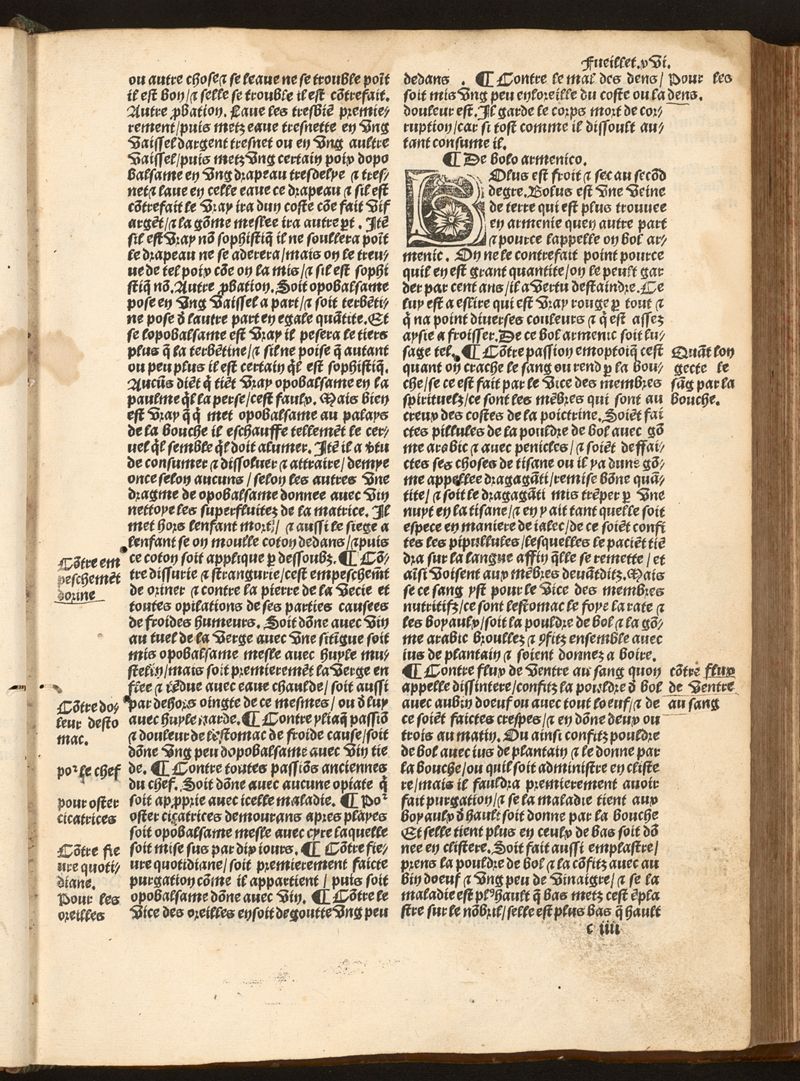 Fueillet.xvi.
ou autre chose⁊ se leaue ne se trouble poĩt
il est bon/⁊ selle se trouble il est cõtrefait.
Autre ꝓbation. Laue les tresbiẽ premie-
rement/puis metz eaue tresnette en vng
vaissel dargent tresnet ou en vng aultre
vaissel/puis metz vng certain poix dopo
balsame en vng drapeau tresdelye ⁊ tres-
net⁊ laue en celle eaue ce drapeau ⁊ sil est
cõtrefait le vray ira dun coste cõe fait vif
argẽt/⁊ la gõme meslee ira autre pt . Itẽ
sil est vray nõ sophistiq̃ il ne soullera poĩt
le drapeau ne se aderera/mais on le treu/
ue de tel poix cõe on la mis/⁊ sil est sophi
stiq̃ nõ. Autre ꝓbation. Soit opobalsame
pose en vng vaissel a part/⁊ soit terbẽti/
ne pose d̃ lautre part en egale quãtite. Et
se lopobalsame est vray il pesera le tiers
plus q̃ la terbẽtine/⁊ sil ne poise q̃ autant
ou peu plus il est certain q̃l est sophistiq̃.
Aucũs diẽt q̃ tiẽt vray opobalsame en la
paulme q̃l la perse/cest faulx. Mais bien
est vray q̃ q̃ met opobalsame au palays
de la bouche il eschauffe tellemẽt le cer/
uel q̃l semble q̃l doit alumer. Itẽ il a v̾tu
de consumer ⁊ dissoluer ⁊ attraire/ demye
once selon aucuns / selon les autres vne
dragme de opobalsame donnee auec vin
nettoye les superfluitez de la matrice. Il
met hors lenfant mort/ ⁊ aussi le siege a
lenfant se on moulle coton dedans /⁊puis
ce coton soit applique ꝑ dessoubz. ¶ Cõ-
tre dissurie ⁊ strangurie/cest empeschem̃t
de oriner ⁊ contre la pierre de la vecie et
toutes opilations de ses parties causees
de froides humeurs. Soit dõne auec vin
au tuel de la verge auec vne sitigue soit
mis opobalsame mesle auec huyle mu-
stelin/mais soit premieremẽt la verge en
flee ⁊ tẽdue auec eaue chaulde/ soit aussi
par dehors oingte de ce mesmes/ ou d̃ luy
auec huyle narde. ¶ Contre yliaq̃ passiõ
⁊ douleur de lestomac de froide cause/soit
dõne vng peu dopobalsame auec vin tie
de. ¶ Contre toutes passiõs anciennes
du chef. Soit dõne auec aucune opiate q̃
soit ap̱prie auec icelle maladie. ¶ Poꝛ
oster cicatrices demourans apres playes
soit opobalsame mesle auec cyre laquelle
soit mise sus par dix iours. ¶ Cõtre fie/
ure quotidiane/ soit premierement faicte
purgation cõme il appartient / puis soit
opobalsame dõne auec vin. ¶ Cõtre le
vice des oreilles en soit degoutte vng peu
Cõtre em
peschemẽt
dorine
Cõtre do/
leur desto
mac.
poꝛ le chef
pour oster
cicatrices
Cõtre fie
ure quoti/
diane.
Pour les
oreilles
dedans . ¶ Contre le mal des dens/
soit mis vng peu en loreille du coste ou la
douleur est. Il garde le corps mort de cor/
ruption/car si tost comme il dissoult au/
tant consume il.
¶ De bolo armenico.
BOlus est froit ⁊ sec au secõd
degre. Bolus est vne veine
de terre qui est plus trouuee
en armenie quen autre part
⁊ pource lappelle on bol ar/
menic. On ne le contrefait point pource
quil en est grant quantite/ on le peult gar
der par cent ans/il a vertu destaindre. Ce
luy est a eslire qui est vray rouge ꝑ tout ⁊
q̃ na point diuerses couleurs ⁊ q̃ est assez
aysie a froisser. De ce bol armenic soit lu/
sage tel. ¶ Cõtre passion emoptoiq̃ cest
quant on crache le sang ou rend ꝑ la bou/
che/se ce est fait par le vice des membres
spirituelz/ce sont les mẽbres qui sont au
creux des costes de la poictrine. Soiẽt fai
ctes pillules de la pouldre de bol auec gõ
me arabic ⁊ auec penicles/⁊ soiẽt deffai/
ctes ses choses de tisane ou il ya dune gõ-
me appellee dragagãti/remise bõne quã-
tite/⁊ soit le dragagãti mis trẽper ꝑ vne
nuyt en la tisane/⁊ en y ait tant quelle soit
espece en maniere de ialec/de ce soiẽt confi
tes les pipullules/lesquelles le paciẽt tiẽ
dra sur la langue affin q̃lle se remette/ et
aĩsi voisent aux mẽbres deuãtditz. Mais
se ce sang yst pour le vice des membres
nutritifz/ce sont lestomac le foye la rate ⁊
les boyaulx/soit la pouldre de bol ⁊ la gõ-
me arabic broullez ⁊ ꝯfitz ensemble auec
ius de plantain ⁊ soient donnez a boire.
¶ Contre flux de ventre au sang quon
appelle dissintere/confitz la pouldre d̃ bol
auec aubin doeuf ou auec tout loeuf/⁊ de
ce soiẽt faictes crespes/⁊ en dõne deux ou
trois au matin. Ou ainsi confitz pouldre
de bol auec ius de plantain ⁊ le donne par
la bouche/ou quil soit administre en cliste
re/mais il fauldra premierement auoir
fait purgation/⁊ se la maladie tient aux
boyaulx d̃ hault soit donne par la bouche
Et selle tient plus en ceulx de bas soit dõ
nee en clistere. Soit fait aussi emplastre/
prens la pouldre de bol ⁊ la cõfitz auec au
bin doeuf ⁊ vng peu de vinaigre/⁊ se la
maladie est plꝰ hault q̃ bas metz cest ẽpla
stre sur le nõbril/selle est plus bas q̃ hault
c iiii
Pour les
dens.
Quãt lon
gecte le
sãg par la
bouche.
cõtre flux
de ventre
au sang